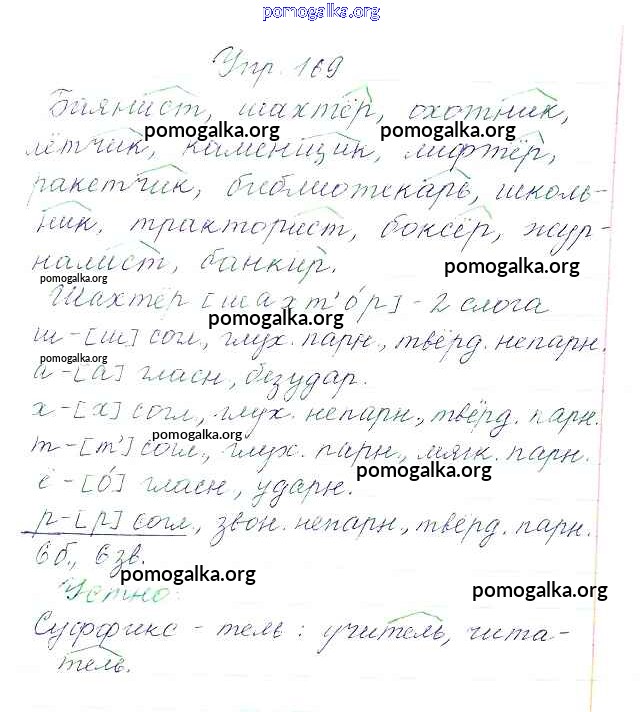 pomogalka.org
Упр. 169
Баянист, шахтёр, охотник,
pomogalka.org pomogalka.org
лётчик, каменщик, лифтёр,
ракетчик, библиотекарь, школь-
ник, тракторист, боксёр, жур-
налист, банкир.
pomogalka.org
pomogalka.org
Шахтёр [шахт'óр] - 2 слога
pomogalka.org
ш-[ш] согл., глух. парн., твёрд. непарн.
pomogalka.org
а-[а] гласн., безудар.
х-[х] согл., глух. непарн., твёрд. парн.
pomogalka.org
т-[т'] согл., глух. парн., мягк. парн.
pomogalka.org
ё-[ó] гласн., ударн.
р-[р] согл., звон. непарн., твёрд. парн.
6 б., 6 зв.
pomogalka.org
pomogalka.org
Устно:
Суффикс - тель: учитель, чита-
тель.